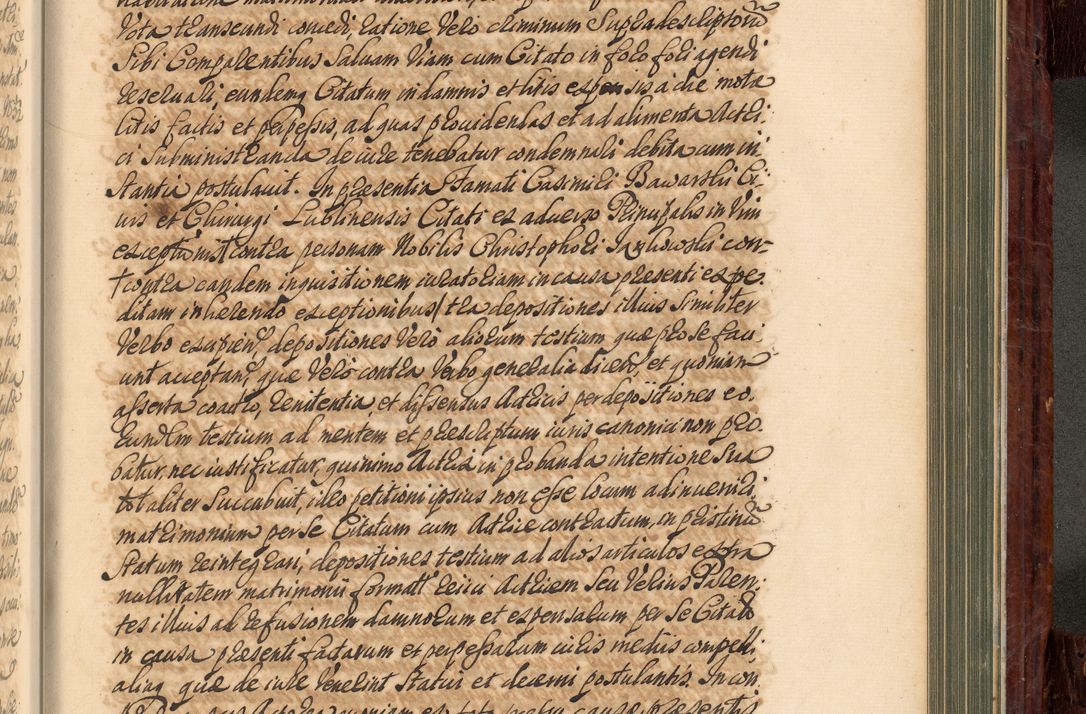 Vota transeundi concedi, ratione Vero criminum Supradescriptorũ
Sibi Comparentibus Salvam Viam cum Citato in foro fori agendi
reservari, eundemq Citatum in damnis et litis expensis a die mota
litis factis et perpessis, ad quas providendas et ad alimenta Actri
ci Subministranda de iure tenebatur condemnari debita cum in
stantia postulavit. In praesentia Famati Casimiri Bawarski Ci
vis et Chirurgi Lublinensis Citati ex adverso Principalis in Vim
exceptionis contra personam Nobilis Christophori con
contra eandem inquisitionem iuratoriam in causa praesenti expe
ditam inherendo exceptionibus tra depositiones illius Similiter
Verbo excipien depositiones Vero aliorum testium quae pro se faci
unt acceptan, quae Vero contra Verbo generalia dicen, et quoniam
asserta coactio, renitentia, et dissensus Actricis per depositiones eo
rundem testium ad mentem et praescriptum iuris canonici non pro
batur, nec iustificatur, quinimo Actrix in probanda intentione Sua
totaliter Succubuit, ideo petitioni ipsius non esse locum adinveniri,
matrimonium per se Citatum cum Actrice contractum, in pristinũ
Statum reintegrari, depositiones testium ad alios articulos extra
nullitatem matrimonii format reiici Actricem Seu Verius Paren
tes illius ad refusionem damnorum et expensarum per se Citatũ
in causa praesenti factarum et perpessarum iuris mediis compelli
aliaq quae de iure Venerint Statui et decerni postulantis. In con